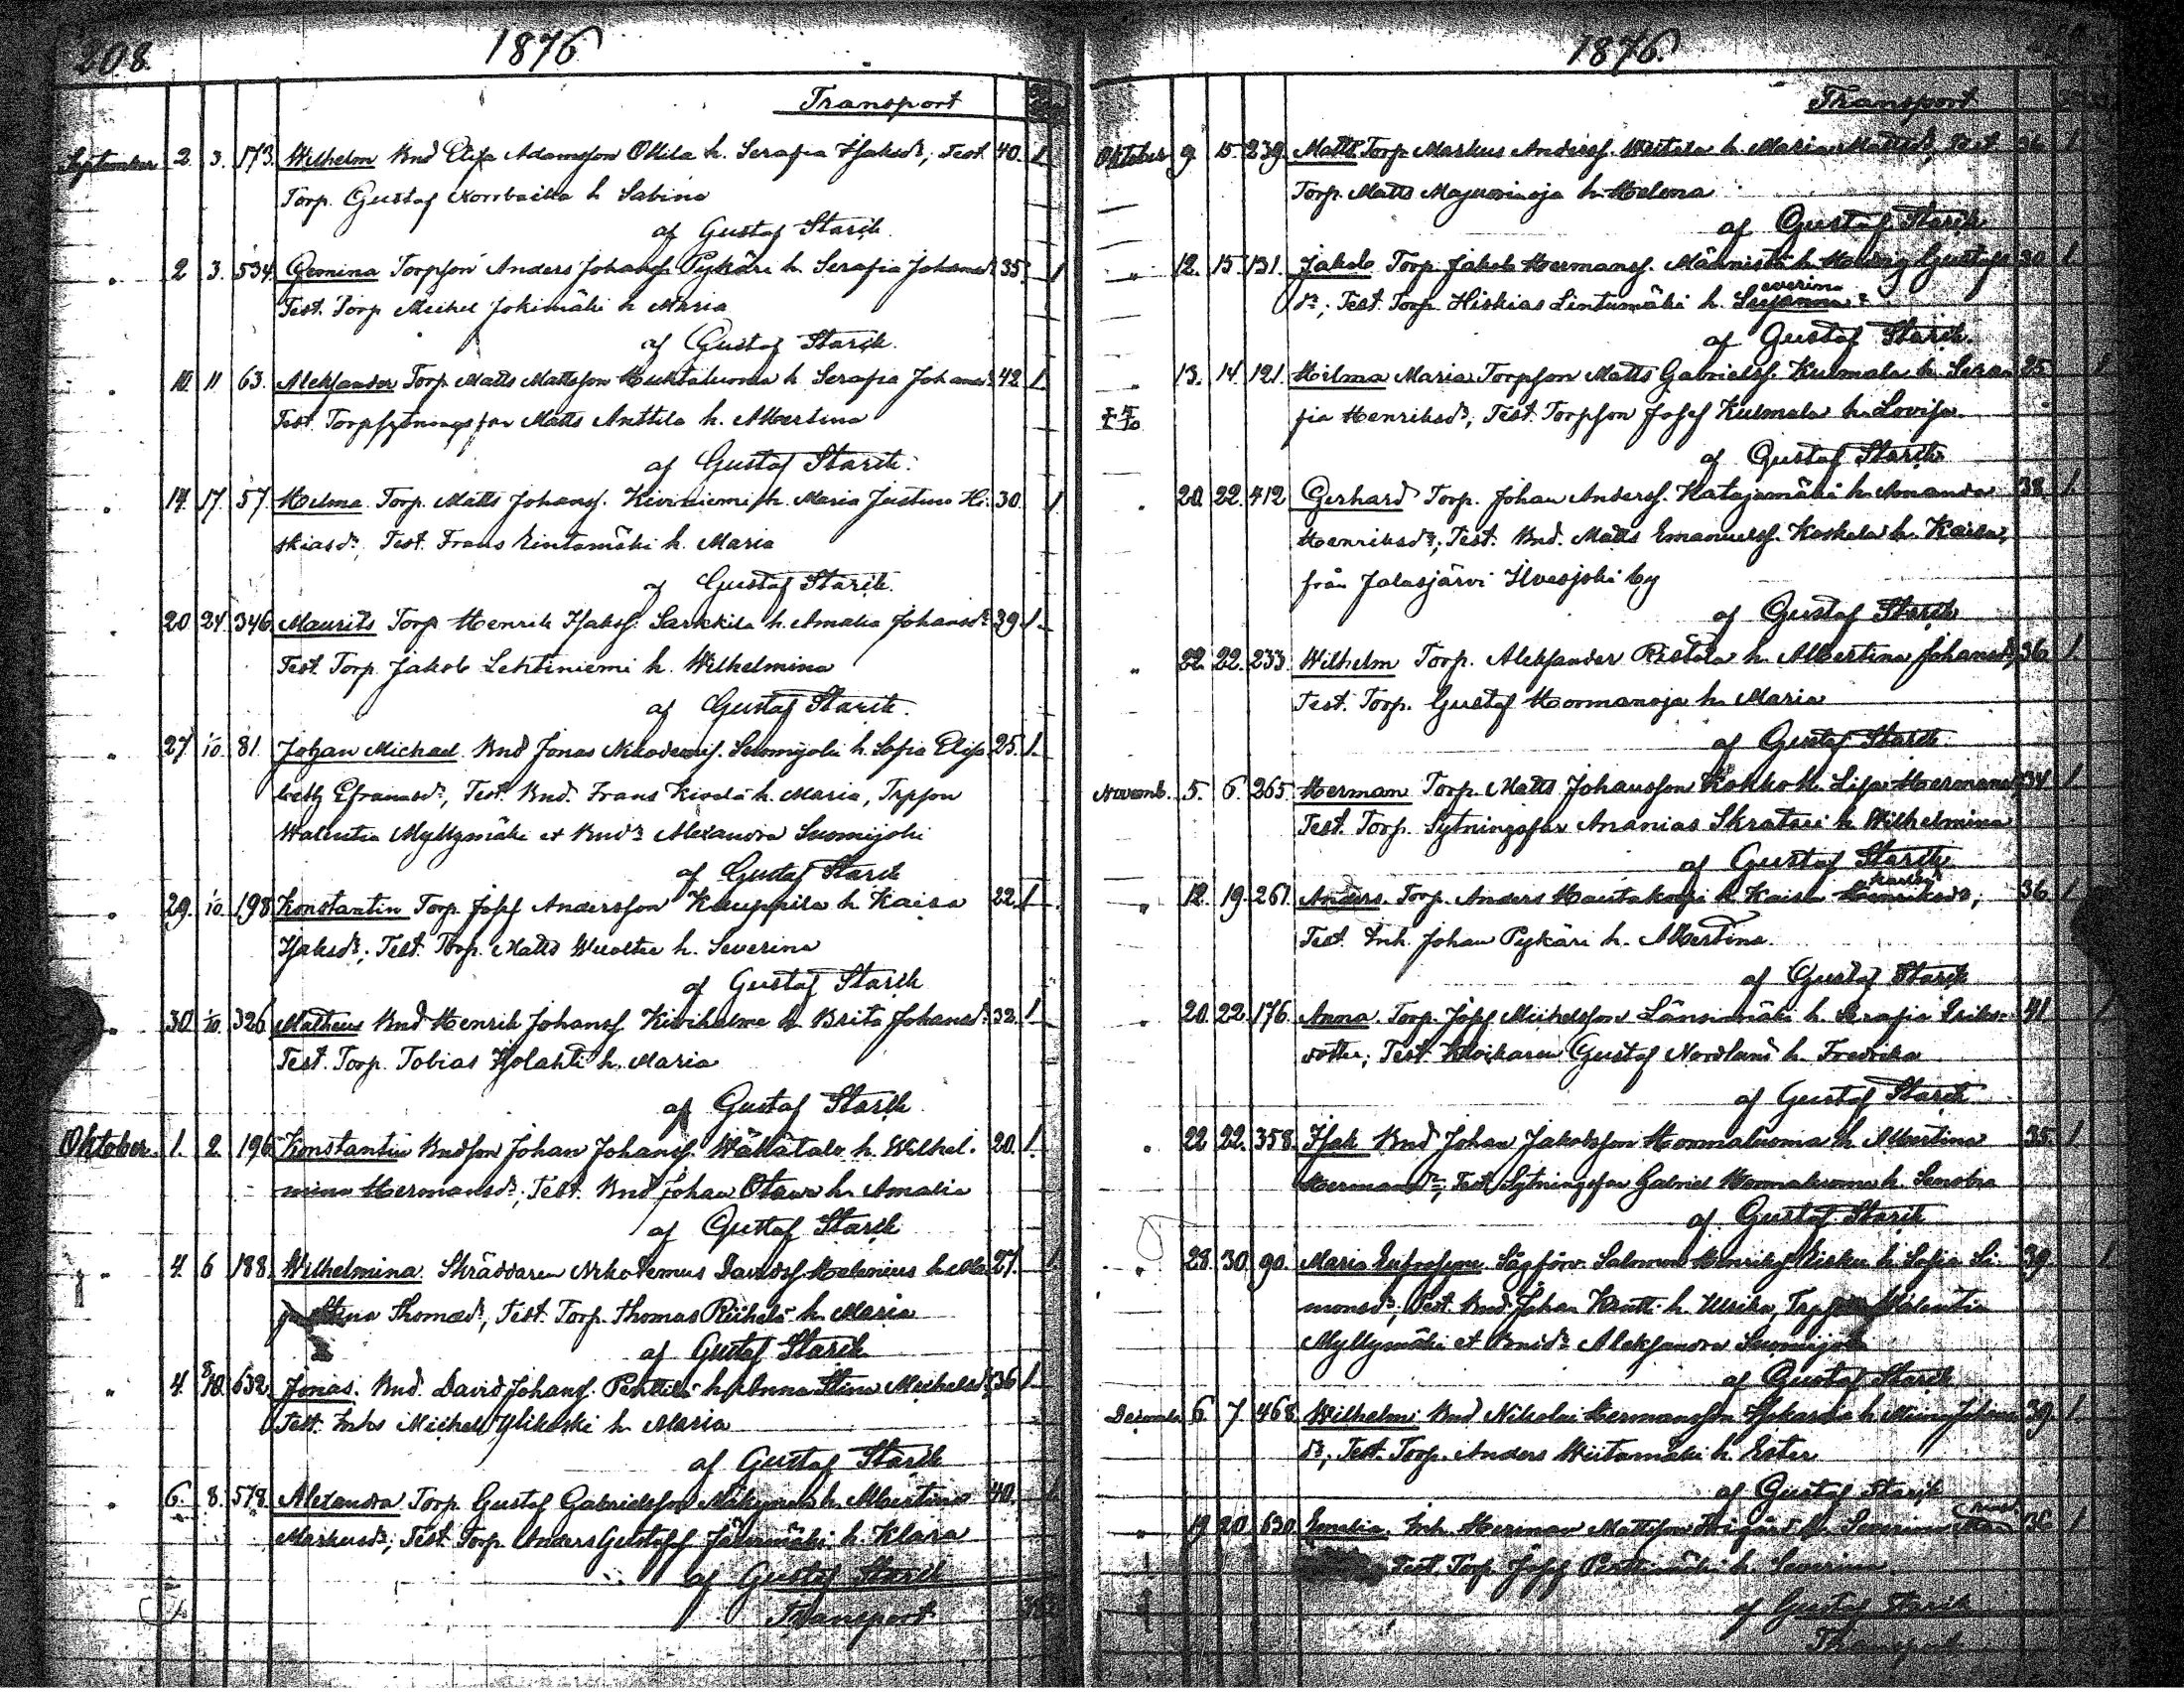 208.
1876
Transport
September 2. 3. 173. Wilhelm Bnd Elisa Adamsson Ollila h. Serafia Isaksdr; Test. 40. 1
Torp. Gustaf Norrbacka h Sabina
af Gustaf Starck.
" 2 3. 534. Gemina Torpson Anders Johansf. Pykäri h. Serafia Johansdr 35. 1
Test. Torp Michel Jokimäki h Maria
af Gustaf Starck.
" 10. 11 63. Aleksander Torp Matts Mattsson Huhtaluoma h Serafia Johansdr 42. 1.
Test. Torpsytningsfar Matts Anttila h. Albertina
af Gustaf Starck.
" 14. 17. 57. Helma Torp. Matts Johansf. Kiviniemi h. Maria Justina Hi- 30. 1
skiasdr, Test. Frans Lintamäki h. Maria
af Gustaf Starck.
" 20 24. 346. Maurits Torp Henrik Isaksf. Sarkkila h. Amalia Johansdr 39. 1.
Test. Torp. Jakob Lehtiniemi h. Wilhelmina
af Gustaf Starck.
" 27. 1/10. 81. Johan Michael Bnd Jonas Nikodemusf. Luomijoki h. Sofia Elisa- 25. 1.
beth Efraimsdr, Test. Bnd. Frans Kivelä h. Maria, Trpson
Walentin Myllymäki et Bnd dr Alexandra Luomijoki
af Gustaf Starck
" 29. 1/10. 198. Konstantin Torp. Josef Andersson Kauppila h. Kaisa 22. 1.
Isaksdr; Test. Torp. Matts Wuoltee h. Severina
af Gustaf Starck
" 30. 1/10. 326. Matheus Bnd Henrik Johansf. Kiviholme h. Brita Johansdr 32. 1
Test. Torp. Tobias Isolahti h. Maria
af Gustaf Starck
Oktober. 1. 2. 196. Konstantin Bndson Johan Johansf. Wälitalo h. Wilhel- 20. 1.
mina Hermansdr; Test. Bnd Johan Otava h. Amalia
af Gustaf Starck
" 4. 6 188. Wilhelmina Skräddaren Nikodemus Davidsf Helenius h. Ma- 27. 1.
ja Stina Thomædr, Test. Torp. Thomas Riihelä h. Maria
af Gustaf Starck
" 4. 8/10. 632. Jonas. Bnd. David Johansf. Penttilä h. Anna Stina Michelsdr, 36 1
Test. Inhs Michel Ylikoski h. Maria
af Gustaf Starck
" 6. 8. 578. Alexandra Torp. Gustaf Gabrielsson Mäkynen h. Albertina 40. 1
Markusdr; Test. Torp Anders Gustafsf h. Klara
af Gustaf Starck
Transport
1876.
Transport
Oktober 9. 15. 239. Matts Torp. Markus Andersf. h. Maria Mattsdr, Test. 36 1
Torp. Matts h. Helena
af Gustaf Starck
" 12. 15 131. Jakob Torp. Jakob Hermansf. Männistö h. Hedvig Gustafs- 30 1
dr; Test. Torp. Hiskias Lintumäki h. Severina
af Gustaf Starck.
" 13. 14 121. Hilma Maria Torpson Matts Gabrielsf. Kulmala h. Sera- 25 1
fia Henriksdr; Test. Torpson Josef Kulmala h. Lovisa
af Gustaf Starck
" 20. 22. 412. Gerhard Torp. Johan Andersf. Katajamäki h. Amanda 38. 1.
Henriksdr; Test. Bnd. Matts Emanuelsf. Koskela h. Kaisa,
från Jalasjärvi Ilvesjoki by
af Gustaf Starck
" 22. 22. 233. Wilhelm Torp. Aleksander Ristola h. Albertina Johansdr, 36 1.
Test. Torp. Gustaf Hormanoja h. Maria
af Gustaf Starck.
Novemb. 5. 6. 265. Herman Torp. Matts Johansson Kohko h. Lisa Hermansdr, 34 1.
Test. Torp. Sytningsfar Ananias Skratari h. Wilhelmina
af Gustaf Starck
" 12. 19. 261. Anders. Torp. Anders h. Kaisa 36 1.
Test. Inh. Johan Pykäri h. Albertina.
af Gustaf Starck
" 20. 22 176. Anna. Torp. Josef Michelsson Länsimäki h. Serafia Eriks- 41 1
dotter; Test. Gustaf Nordlund h. Fredrika
af Gustaf Starck
" 22 22. 358. Isak Bnd Johan Jakobsson Hormaluoma h. Albertina 35. 1
Hermansdr; Test. Sytningsfar Gabriel Hormaluoma h. Senobia
af Gustaf Starck
" 28. 30. 90. Maria Eufrosyne. Sågförv. Salomon Henriksf h. Sofia Si- 39 1
monsdr; Test. Bnd. Johan h. Ulrika, Walentin
Myllymäki et Bnd dr Aleksandra Luomijoki
af Gustaf Starck
December 6 7 468. Wilhelm Bnd Nikolai Hermansson h. Miina Johans- 39. 1
dr, Test. Torp. Anders Wiitamäki h. Ester
af Gustaf Starck
" 19 20 630. Emelia. Inh. Herman Mattsson h. Severina 36 1
Test. Torp. Josef Perttumäki h. Severina
af Gustaf Starck
Transport